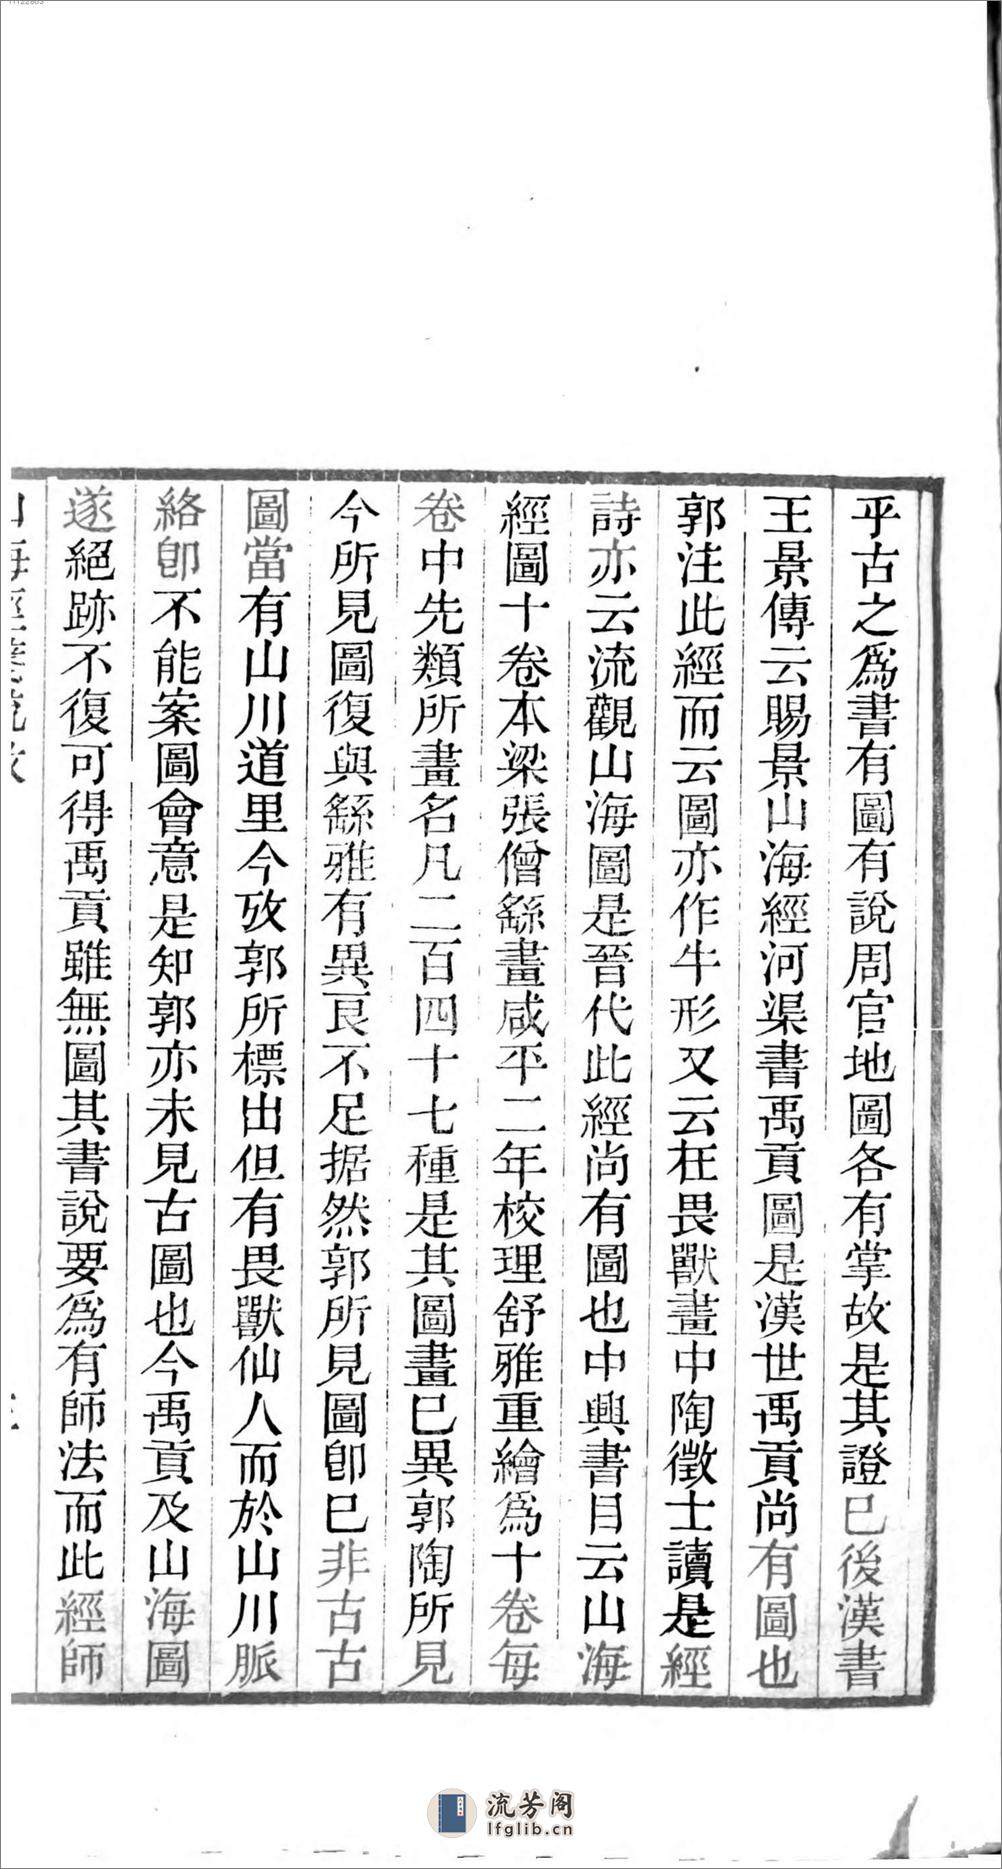 乎古之爲書有圖有說周官地圖各有掌故是其證已後漢書
王景傳云賜景山海經河渠書禹貢圖是漢世禹貢尚有圖也
郭注此經而云圖亦作牛形又云在畏獸畫中陶徵士讀是經
詩亦云流觀山海圖是晉代此經尚有圖也中興書目云山海
經圖十卷本梁張僧繇畫咸平二年校理舒雅重繪爲十卷每
卷中先類所畫名凡二百四十七種是其圖畫已異郭陶所見
今所見圖復與繇雅有異良不足据然郭所見圖卽已非古古
圖當有山川道里今攷郭所標出但有畏獸仙人而於山川脈
絡卽不能案圖會意是知郭亦未見古圖也今禹貢及山海圖
遂絕跡不復可得禹貢雖無圖其書說要爲有師法而此經師
流芳阁
lfglib.cn